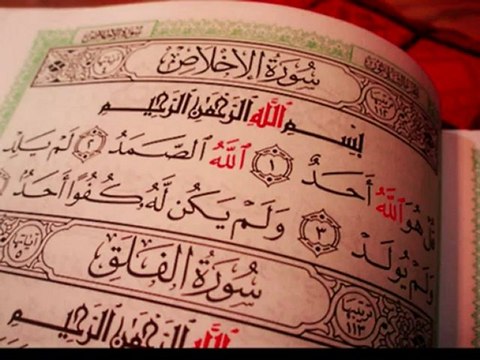 سُورَةُ الإِخْلَاصِ
بِسْمِ ٱللَّهِ ٱلرَّحْمَٰنِ ٱلرَّحِيمِ
قُلْ هُوَ ٱللَّهُ أَحَدٌ ١ ٱللَّهُ ٱلصَّمَدُ ٢ لَمْ يَلِدْ
وَلَمْ يُولَدْ ٣ وَلَمْ يَكُن لَّهُۥ كُفُوًا أَحَدٌۢ
سُورَةُ الفَلَقِ
ترتيبها ١١٣
ٱللَّهِ ٱلرَّحْمَٰنِ ٱلرَّحِيمِ